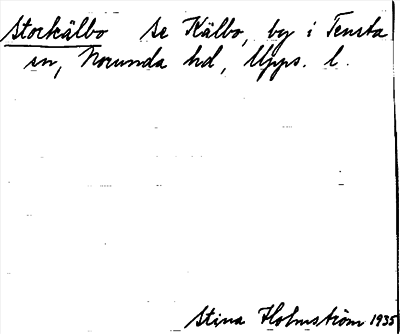 Storkälbo Se Kälbo, by i Tensta
sn, Norunda hd, Upps. l.
Stina Holmström 1935